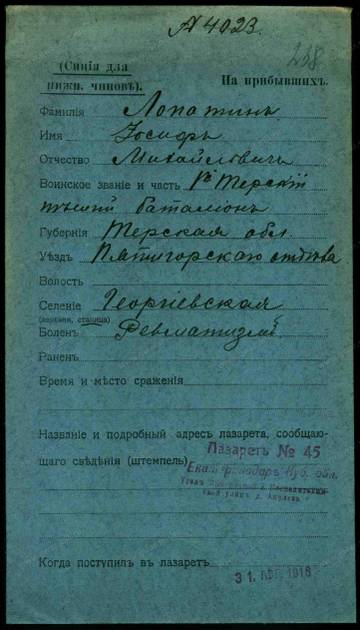 А 4023.
238
(Синія для
нижн. чиновъ).
На прибывшихъ.
Фамилія Лопатинъ
Имя Іосифъ
Отчество Михайловичъ
Воинское званіе и часть Терскій
пѣшій баталіонъ
Губернія Терская обл.
Уѣздъ Пятигорскаго отдѣла
Волость
Селеніе Георгіевская
(деревня, станица)
Боленъ Ревматизмъ
Раненъ
Время и мѣсто сраженія
Названіе и подробный адресъ лазарета, сообщаю-
щаго свѣдѣнія (штемпель)
Лазаретъ № 45
Екатеринодаръ Куб. обл.
Уголъ и
улицъ д.
Когда поступилъ въ лазаретъ
31 1916